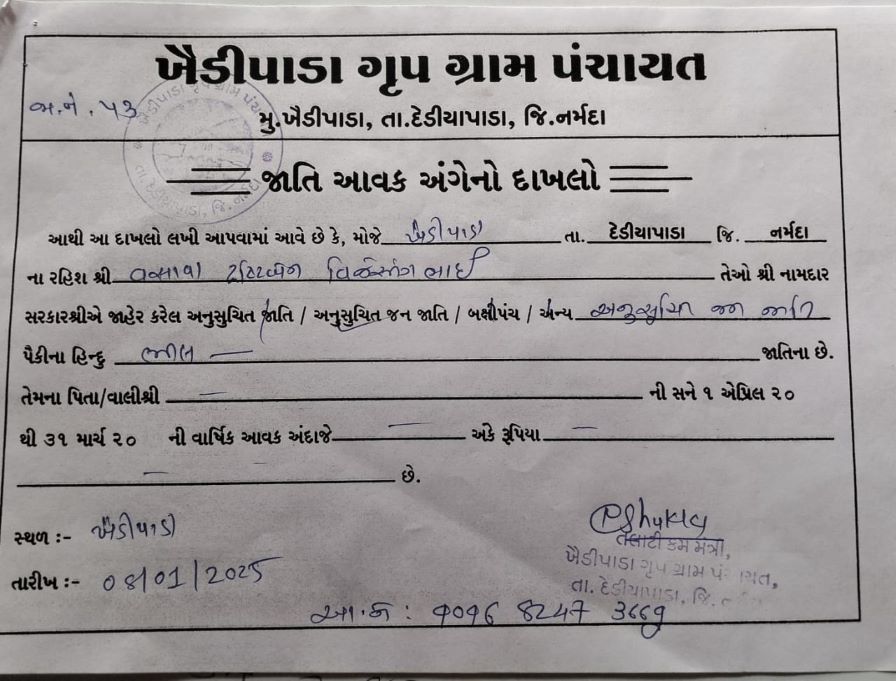 ખૈડીપાડા ગૃપ ગ્રામ પંચાયત
જા.નં. ૫૩
મુ.ખૈડીપાડા, તા.દેડીયાપાડા, જિ.નર્મદા
જાતિ આવક અંગેનો દાખલો
આથી આ દાખલો લખી આપવામાં આવે છે કે, મોજે ખૈડીપાડા તા. દેડીયાપાડા જિ. નર્મદા
ના રહિશ શ્રી વસાવા ભાઈ તેઓ શ્રી નામદાર
સરકારશ્રીએ જાહેર કરેલ અનુસુચિત જાતિ / અનુસુચિત જન જાતિ / બક્ષીપંચ / અન્ય અનુસુચિત જન જાતિ
પૈકીના હિન્દુ ભીલ — જાતિના છે.
તેમના પિતા/વાલીશ્રી — ની સને ૧ એપ્રિલ ૨૦
થી ૩૧ માર્ચ ૨૦ ની વાર્ષિક આવક અંદાજે — અકે રૂપિયા —
— છે.
સ્થળ :- ખૈડીપાડા
તારીખ :- 08/01/2025
તલાટી કમ મંત્રી,
ખૈડીપાડા ગૃપ ગ્રામ પંચાયત,
તા. દેડીયાપાડા, જિ.
આ.કા :